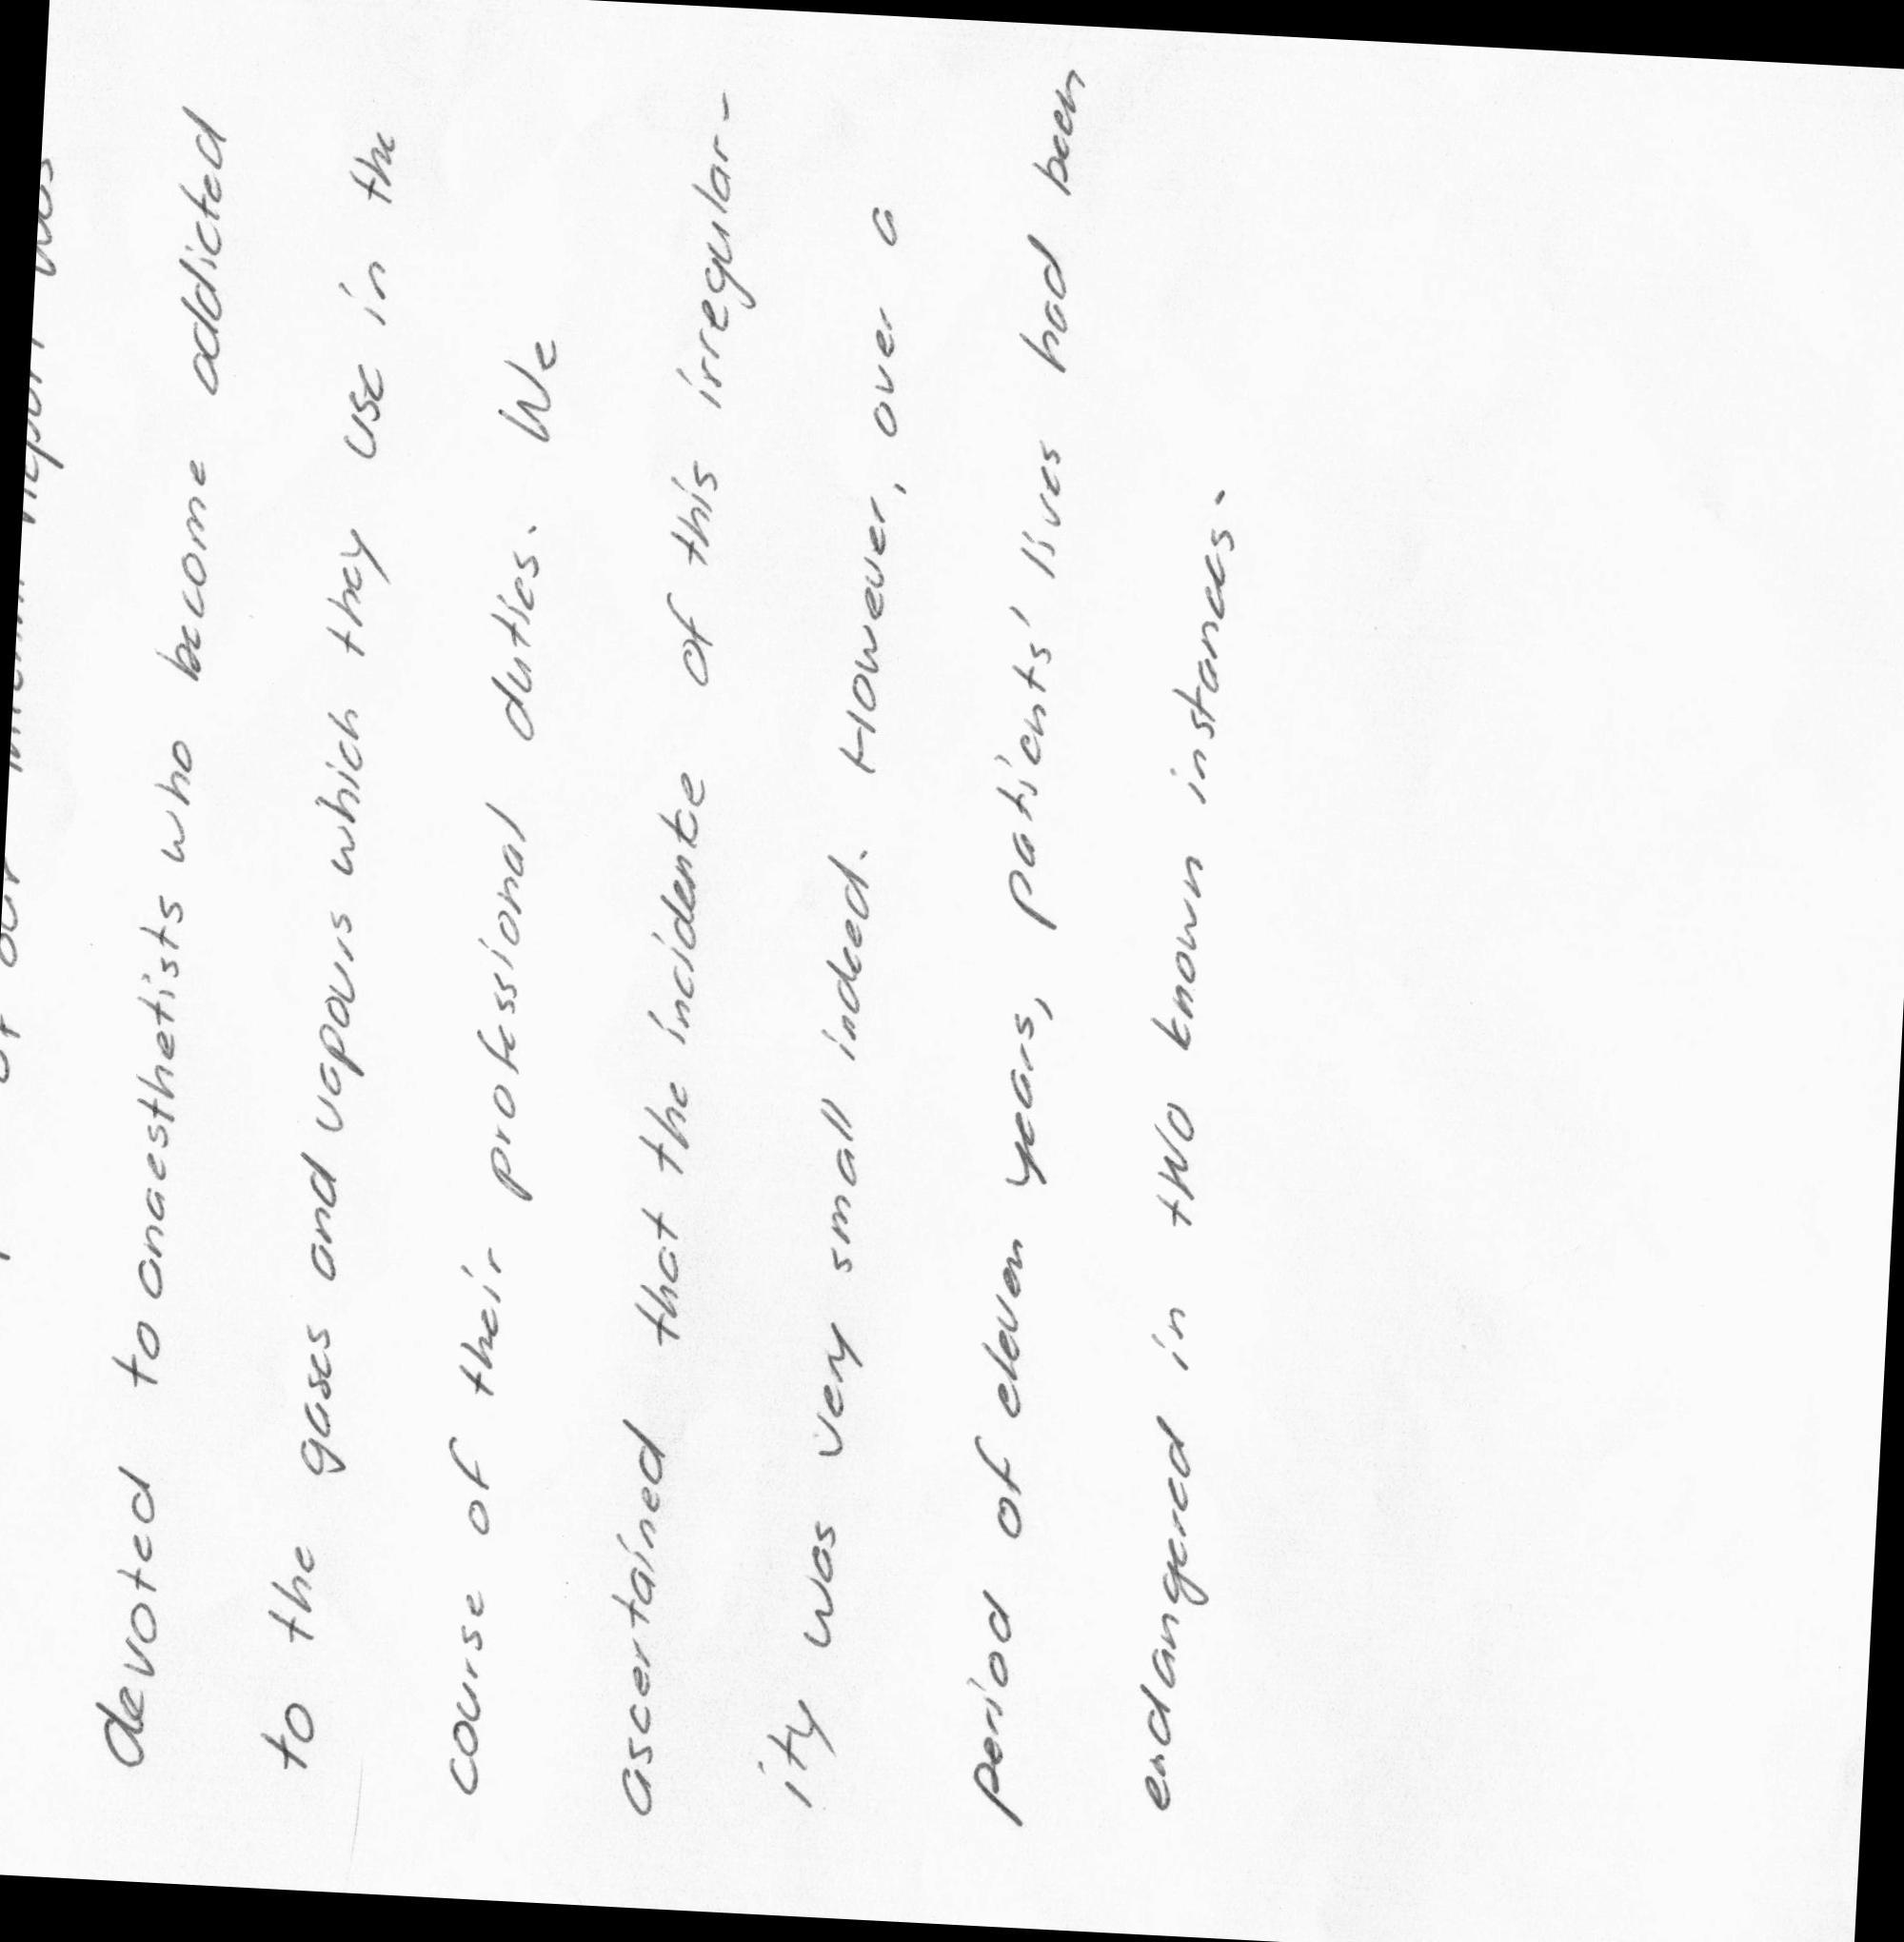 of our interim report was
devoted to anaesthetists who become addicted
to the gases and vapours which they use in the
course of their professional duties. We
ascertained that the incidence of this irregular-
ity was very small indeed. However, over a
period of eleven years, patients' lives had been
endangered in two known instances.